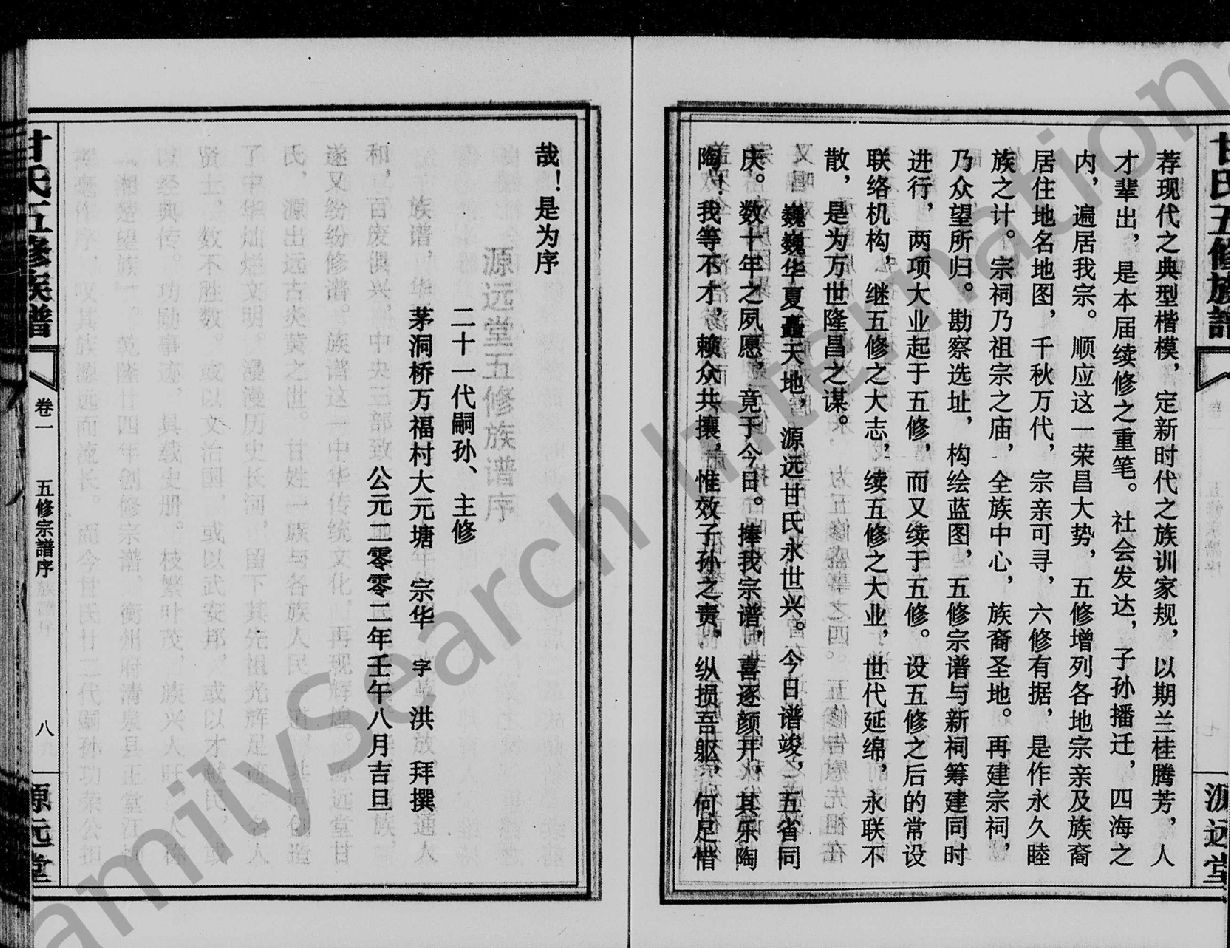 甘氏五修族譜
源远堂
荐现代之典型楷模，定新时代之族训家规，以期兰桂腾芳，人
才辈出，是本届续修之重笔。社会发达，子孙播迁，四海之
内，遍居我宗。顺应这一荣昌大势，五修增列各地宗亲及族裔
居住地名地图，千秋万代，宗亲可寻，六修有据，是作永久睦
族之计。宗祠乃祖宗之庙，全族中心，族裔圣地。再建宗祠，
乃众望所归。勘察选址，构绘蓝图，五修宗谱与新祠筹建同时
进行，两项大业起于五修，而又续于五修。设五修之后的常设
联络机构，继五修之大志，续五修之大业，世代延绵，永联不
散，是为万世隆昌之谋。
巍巍华夏矗天地，源远甘氏永世兴。今日谱竣，五省同
庆。数十年之夙愿，竟于今日。捧我宗谱，喜逐颜开，其乐陶
陶！我等不才，赖众共攘，惟效子孙之责，纵损吾躯，何足惜
哉！是为序
二十一代嗣孙、主修
茅洞桥万福村大元塘 宗华 字 洪 拜撰
公元二零零二年壬午八月吉旦
甘氏五修族譜
卷一
五修宗譜序
八
源远堂
FamilySearch International